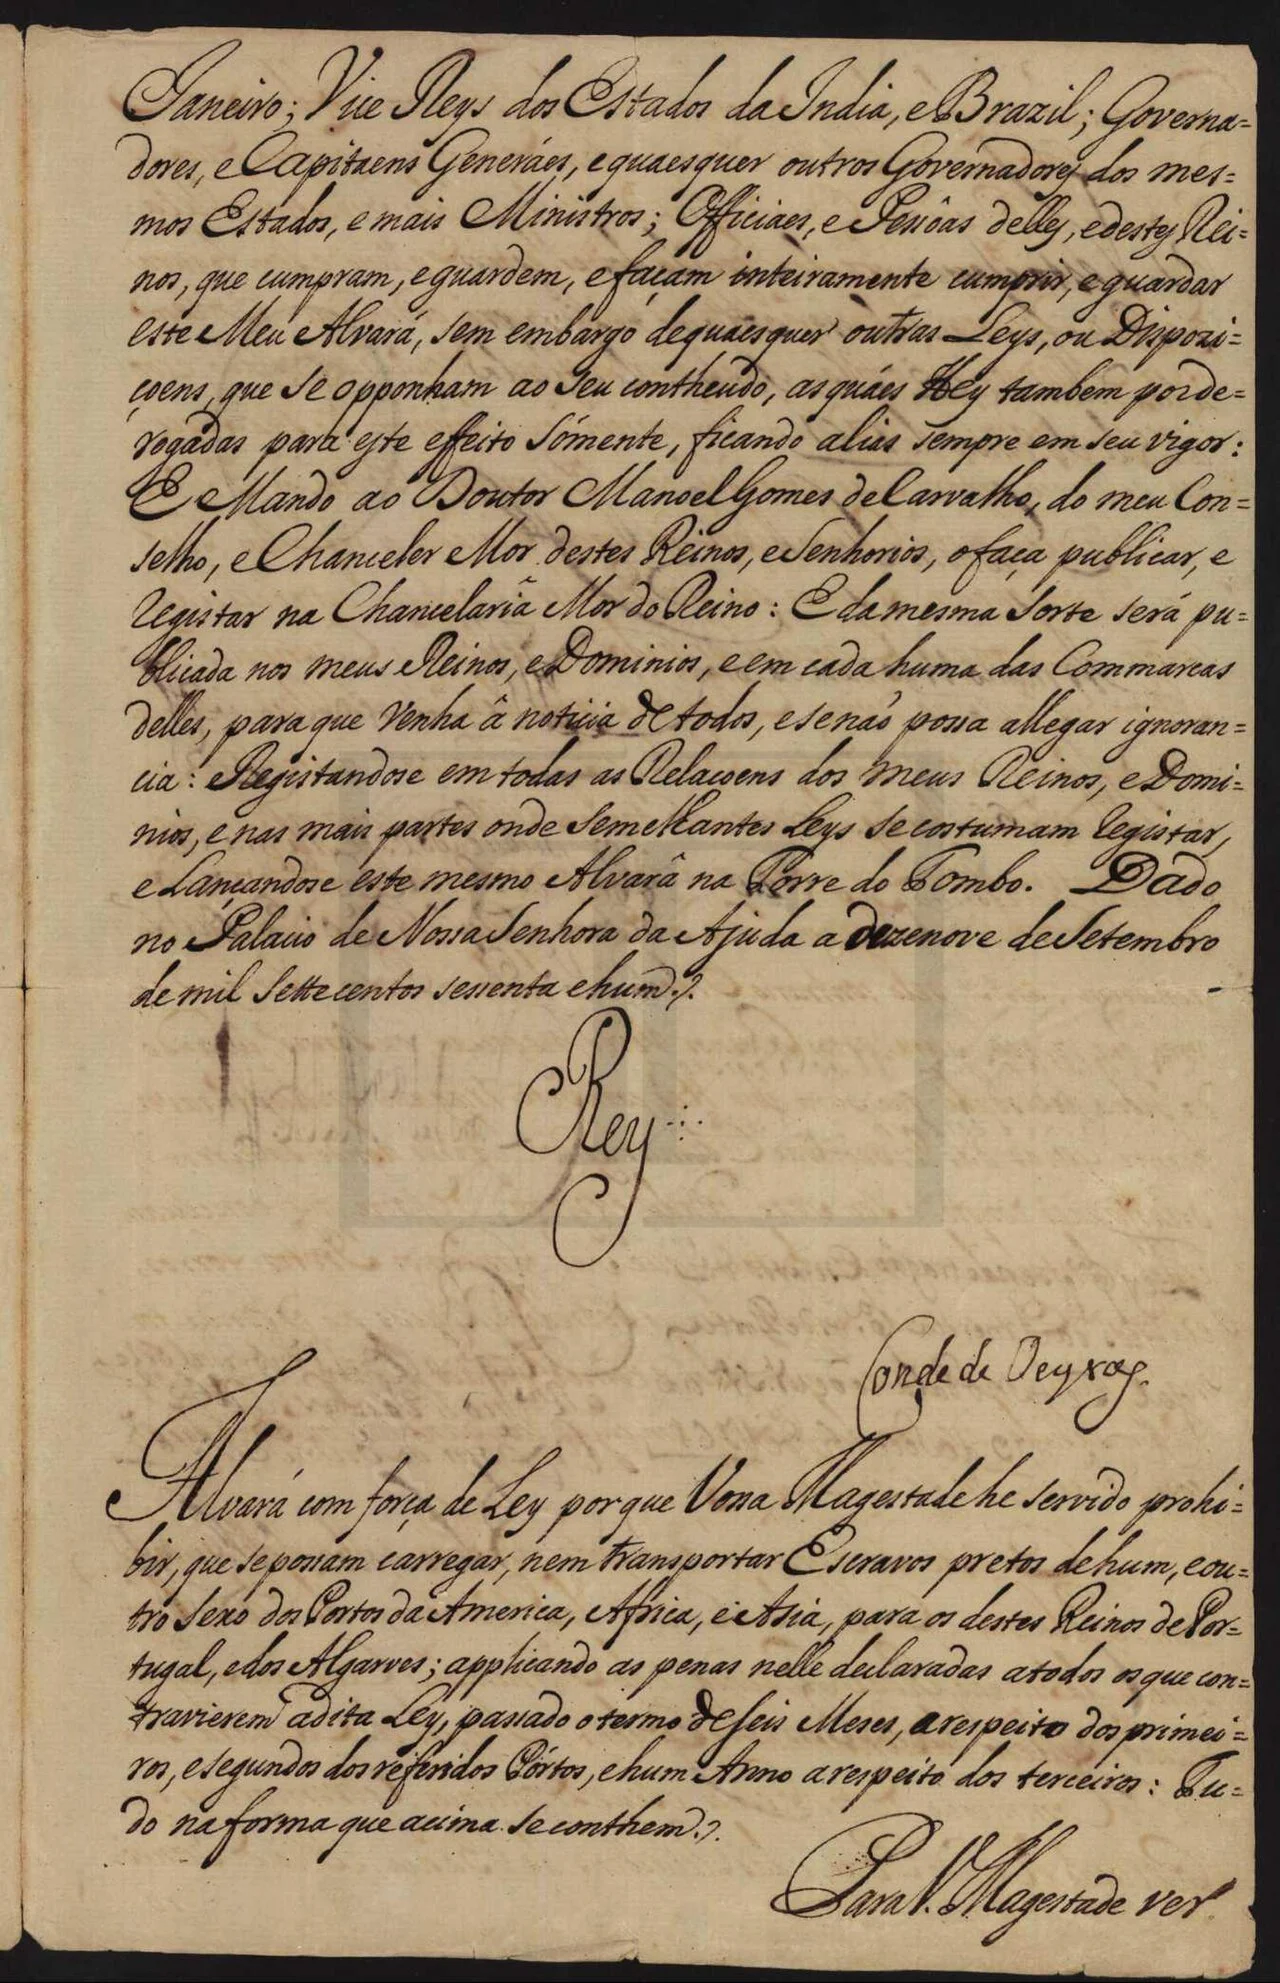 Janeiro; Vice Reys dos Estados da India, e Brazil; Governa=
dores, e Capitaens Generáes, e quaesquer outros Governadores dos mes=
mos Estados, e mais Ministros; Officiaes, e Pessôas delles, e destes Rei=
nos, que cumpram, e guardem, e façam inteiramente cumprir, e guardar
este Meu Alvará, sem embargo de quaesquer outras Leys, ou Dispozi=
çoens, que se opponham ao seu contheudo, as quáes Hey tambem por de=
rogadas para este effeito sómente, ficando alias sempre em seu vigor:
E Mando ao Doutor Manoel Gomes de Carvalho, do meu Con=
selho, e Chanceler Mor destes Reinos, e Senhorios, o faça publicar, e
registar na Chancelaria Mor do Reino: E da mesma sorte será pu=
blicada nos meus Reinos, e Dominios, e em cada huma das Commarcas
delles, para que venha â noticia de todos, e se naõ possa allegar ignoran=
cia: Registandose em todas as Relaçoens dos meus Reinos, e Domi=
nios, e nas mais partes onde semelhantes Leys se costumam registar,
e Lançandose este mesmo Alvarâ na Torre do Tombo. Dado
no Palacio de Nossa Senhora da Ajuda a dezenove de Setembro
de mil settecentos sessenta e hum.
Rey
Conde de Oeyras.
Alvará com força de Ley porque Vossa Magestade he servido prohi=
bir, que se possam carregar, nem transportar Escravos pretos de hum, e ou=
tro Sexo dos Portos da America, Africa, e Asia, para os destes Reinos de Por=
tugal, e dos Algarves; applicando as penas nelle declaradas a todos os que con=
travierem â dita Ley, passado o termo de seis Meses, a respeito dos primei=
ros, e segundos dos referidos Pórtos, e hum Anno a respeito dos terceiros: Tu=
do na forma que acima se conthem.
Para V. Magestade ver